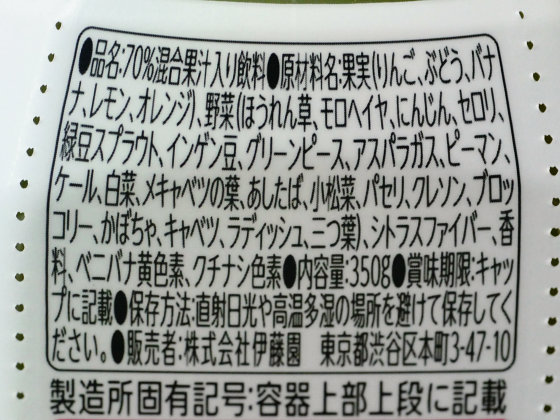 ●品名:70%混合果汁入り飲料●原材料名:果実(りんご、ぶどう、バナ
ナ、レモン、オレンジ)、野菜(ほうれん草、モロヘイヤ、にんじん、セロリ、
緑豆スプラウト、インゲン豆、グリーンピース、アスパラガス、ピーマン、
ケール、白菜、メキャベツの葉、あしたば、小松菜、パセリ、クレソン、ブロッ
コリー、かぼちゃ、キャベツ、ラディッシュ、三つ葉)、シトラスファイバー、香
料、ベニバナ黄色素、クチナシ色素●内容量:350g●賞味期限:キャッ
プに記載●保存方法:直射日光や高温多湿の場所を避けて保存してく
ださい。●販売者:株式会社伊藤園　東京都渋谷区本町3-47-10
製造所固有記号:容器上部上段に記載